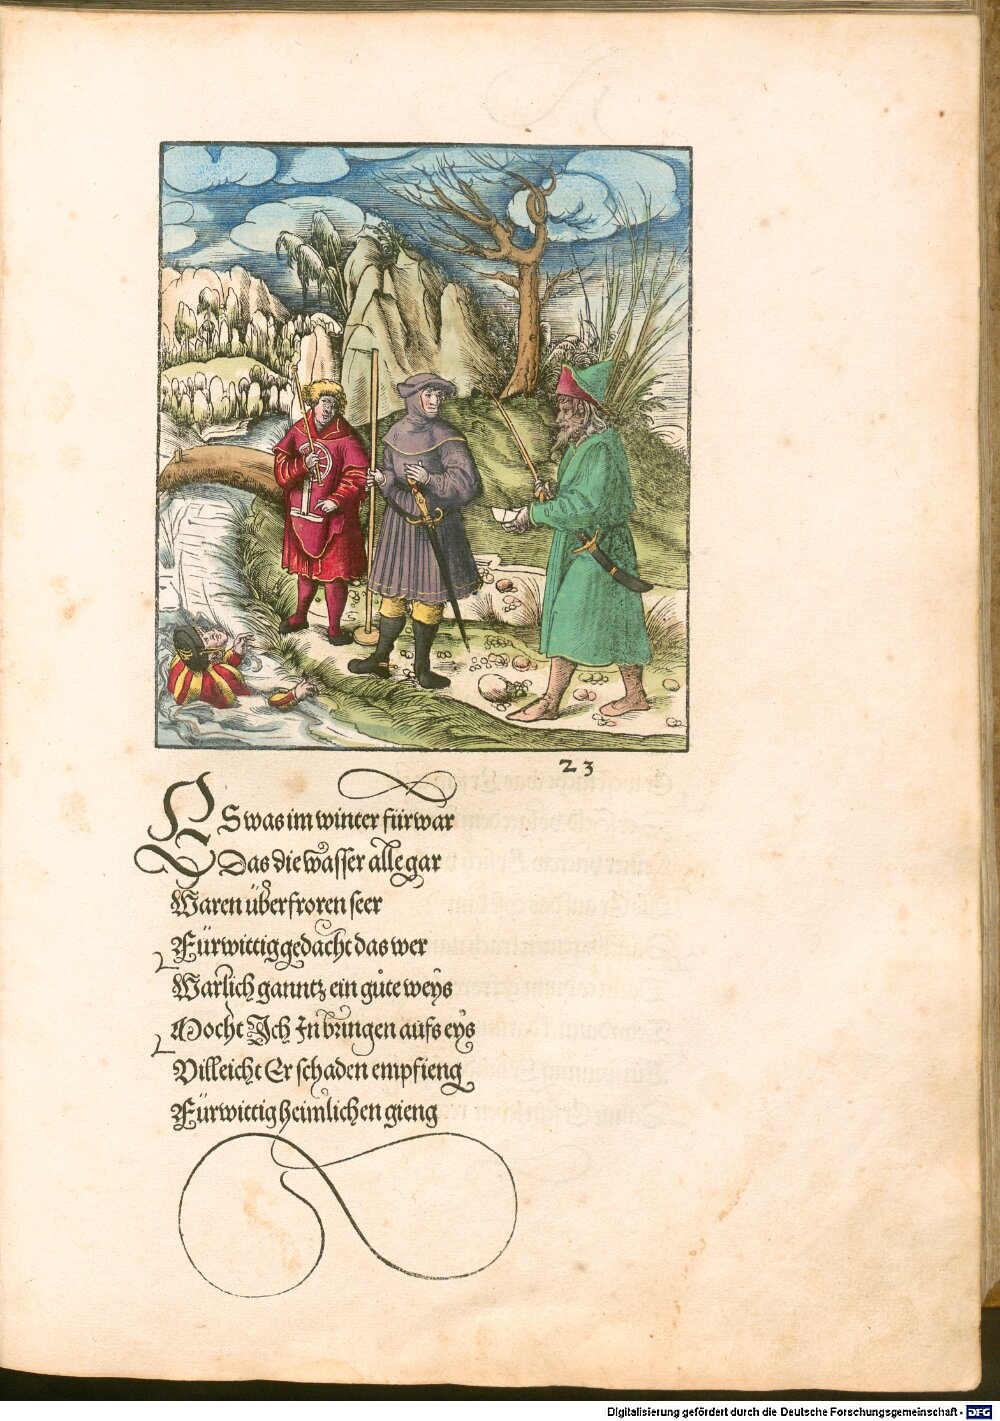 23
ES was im winter fürwar
Das die wasser alle gar
Waren überfroren seer
Fürwittig gedacht das wer
Warlich ganntz ein gůte weys
Mocht Ich In bringen aufs eys
Villeicht Er schaden empfieng
Fürwittig heimlichen gieng
Digitalisierung gefördert durch die Deutsche Forschungsgemeinschaft - DFG